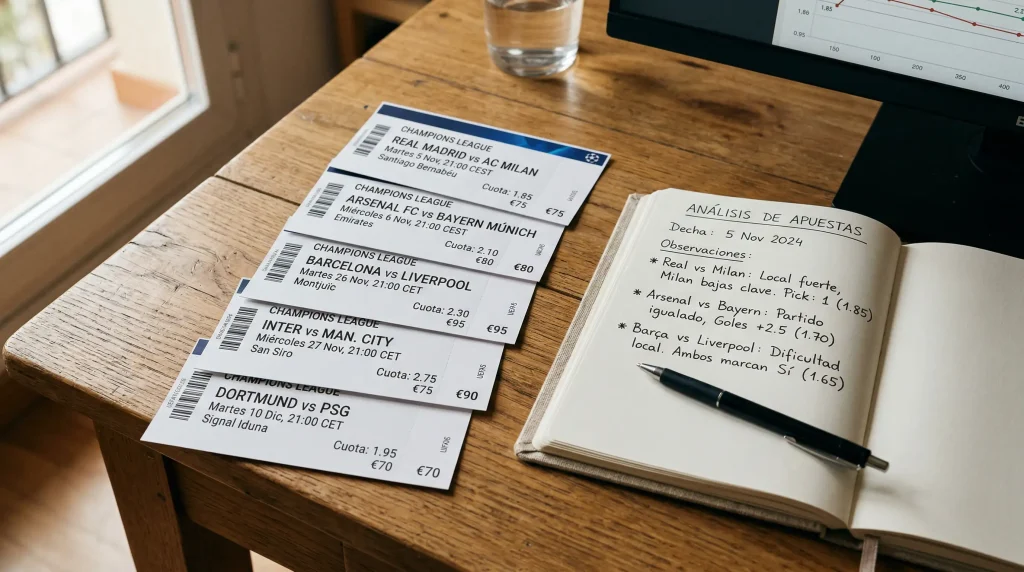 CHAMPIONS LEAGUE
REAL MADRID vs AC MILAN
Martes 5 Nov, 21:00 CEST
Santiago Bernabéu
Cuota: 1.85
€75 €75
CHAMPIONS LEAGUE
ARSENAL FC vs BAYERN MÚNICH
Miércoles 6 Nov, 21:00 CEST
Emirates
Cuota: 2.10
€80 €80
CHAMPIONS LEAGUE
BARCELONA vs LIVERPOOL
Martes 26 Nov, 21:00 CET
Montjuïc
Cuota: 2.30
€95 €95
CHAMPIONS LEAGUE
INTER vs MAN. CITY
Miércoles 27 Nov, 21:00 CET
San Siro
Cuota: 2.75
€75 €90
CHAMPIONS LEAGUE
DORTMUND vs PSG
Martes 10 Dic, 21:00 CET
Signal Iduna
Cuota: 1.95
€70 €70
ANÁLISIS DE APUESTAS
Decha: 5 Nov 2024
Observaciones:
* Real vs Milan: Local fuerte,
Milan bajas clave. Pick: 1 (1.85)
* Arsenal vs Bayern: Partido
igualado, Goles +2.5 (1.70)
* Barça vs Liverpool: Dificultad
local. Ambos marcan Sí (1.65)
1.85
0.95
150
200
350
400